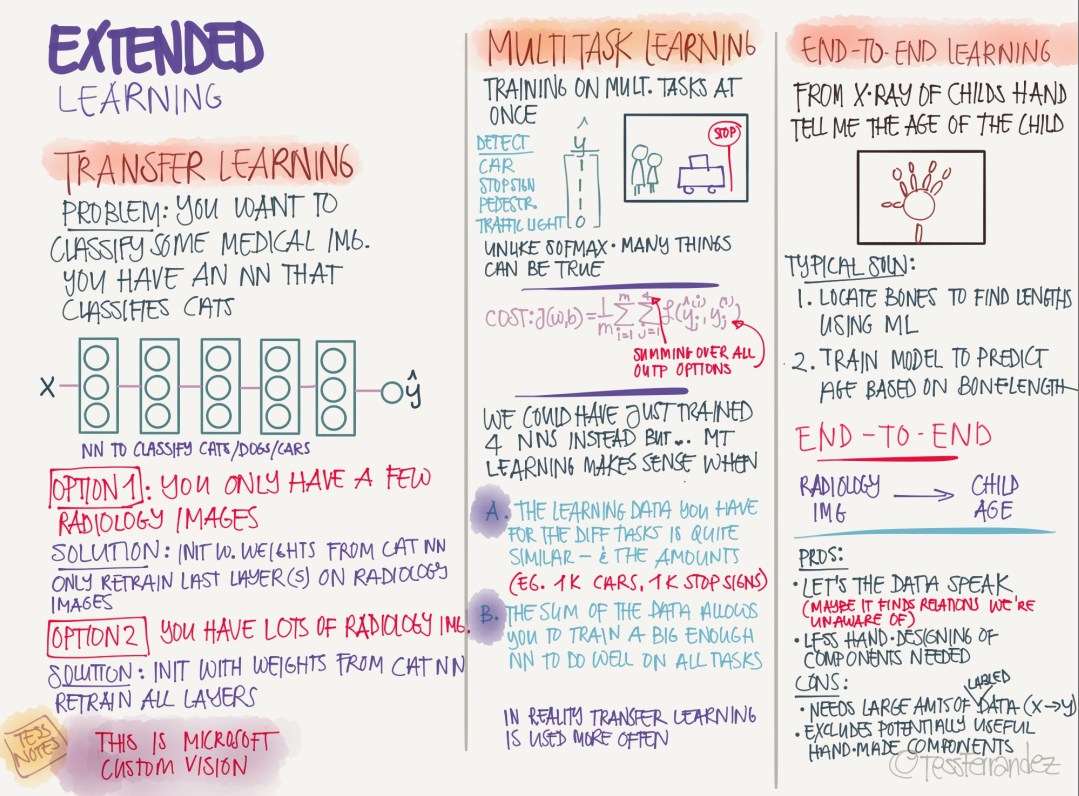 EXTENDED
LEARNING
TRANSFER LEARNING
PROBLEM: YOU WANT TO
CLASSIFY SOME MEDICAL IMG.
YOU HAVE AN NN THAT
CLASSIFIES CATS
X
ŷ
NN TO CLASSIFY CATS/DOGS/CARS
OPTION 1: YOU ONLY HAVE A FEW
RADIOLOGY IMAGES
SOLUTION: INIT W. WEIGHTS FROM CAT NN
ONLY RETRAIN LAST LAYER(S) ON RADIOLOGY
IMAGES
OPTION 2 YOU HAVE LOTS OF RADIOLOGY IMG.
SOLUTION: INIT WITH WEIGHTS FROM CAT NN
RETRAIN ALL LAYERS
TESS NOTES
THIS IS MICROSOFT
CUSTOM VISION
MULTI TASK LEARNING
TRAINING ON MULT. TASKS AT
ONCE
DETECT
CAR
STOPSIGN
PEDESTR.
TRAFFIC LIGHT
ŷ
STOP
UNLIKE SOFMAX · MANY THINGS
CAN BE TRUE
COST: J(w,b) = 1/m Σ_{i=1}^{m} Σ_{j=1}^{4} ℒ(ŷ_j^{(i)}, y_j^{(i)})
SUMMING OVER ALL
OUTP OPTIONS
WE COULD HAVE JUST TRAINED
4 NNS INSTEAD BUT... MT
LEARNING MAKES SENSE WHEN
A. THE LEARNING DATA YOU HAVE
FOR THE DIFF TASKS IS QUITE
SIMILAR – & THE AMOUNTS
(EG. 1K CARS, 1K STOP SIGNS)
B. THE SUM OF THE DATA ALLOWS
YOU TO TRAIN A BIG ENOUGH
NN TO DO WELL ON ALL TASKS
IN REALITY TRANSFER LEARNING
IS USED MORE OFTEN
END-TO-END LEARNING
FROM X-RAY OF CHILDS HAND
TELL ME THE AGE OF THE CHILD
TYPICAL SOLN:
1. LOCATE BONES TO FIND LENGTHS
USING ML
2. TRAIN MODEL TO PREDICT
AGE BASED ON BONELENGTH
END-TO-END
RADIOLOGY IMG → CHILD AGE
PROS:
· LET'S THE DATA SPEAK
(MAYBE IT FINDS RELATIONS WE'RE
UNAWARE OF)
· LESS HAND-DESIGNING OF
COMPONENTS NEEDED
CONS:
LABLED
· NEEDS LARGE AMTS OF DATA (X→Y)
· EXCLUDES POTENTIALLY USEFUL
HAND-MADE COMPONENTS
©TessFerrandez